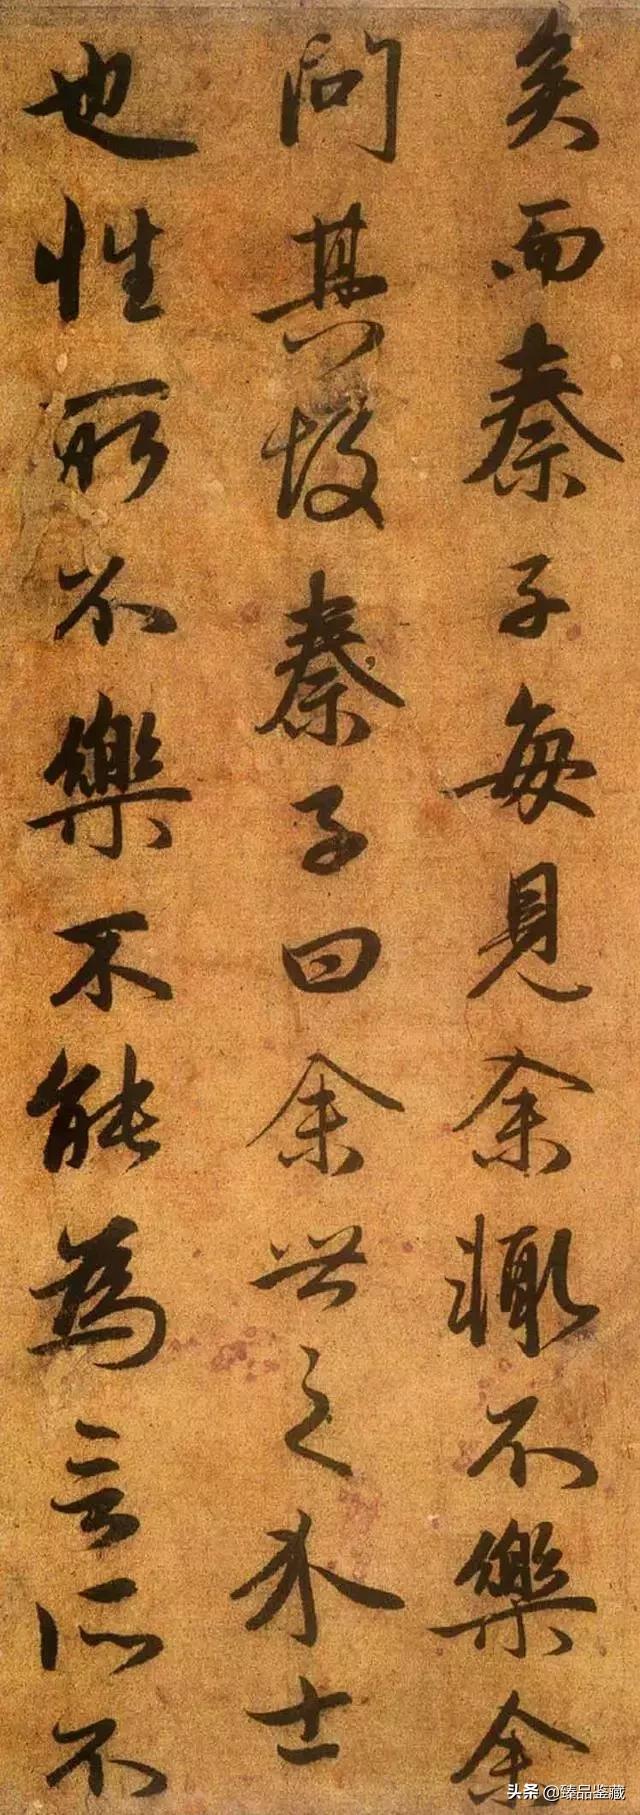 矣而秦子每見余輒不樂余
問其故秦子曰余世之介士
也性所不樂不能為言所不
头条 @臻品鉴藏